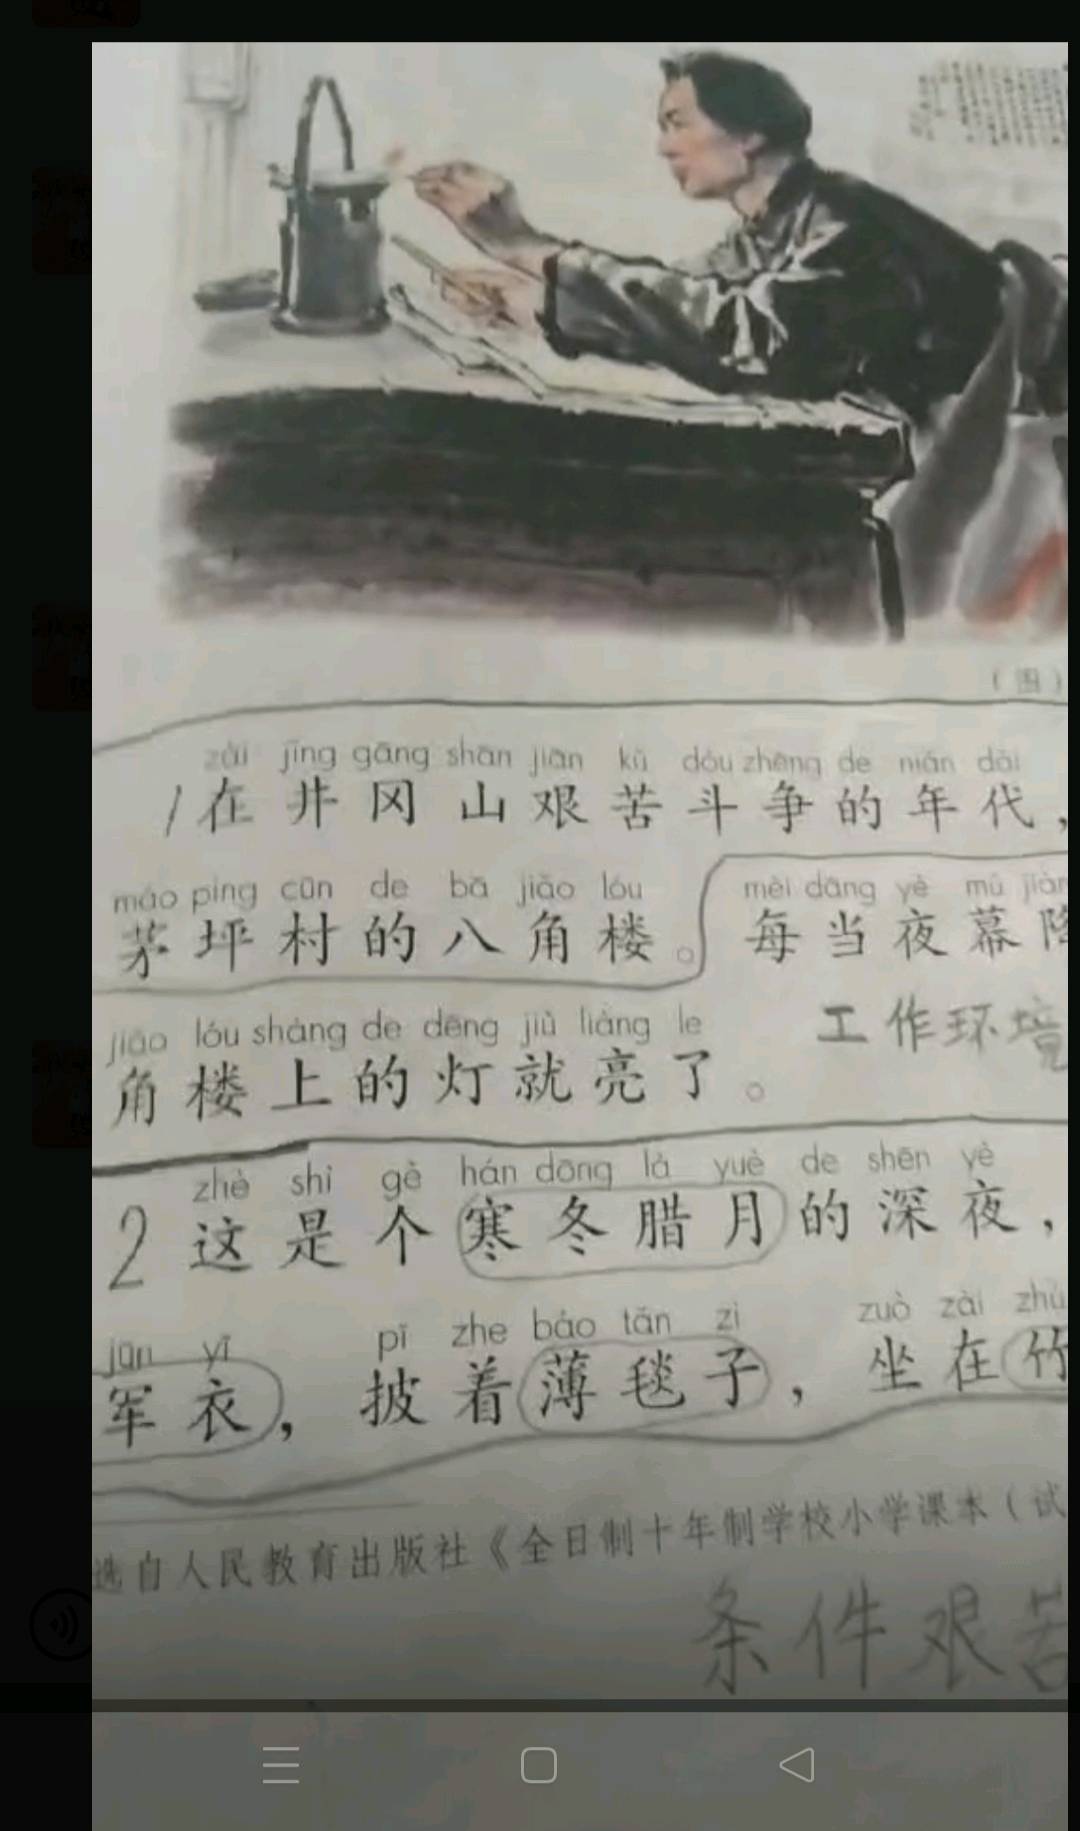 （图）
zài jǐng gāng shān jiān kǔ dòu zhēng de nián dài
1在井冈山艰苦斗争的年代，
máo píng cūn de bā jiǎo lóu
茅坪村的八角楼。
měi dāng yè mù
每当夜幕
jiǎo lóu shàng de dēng jiù liàng le
角楼上的灯就亮了。
工作环境
zhè shì gè hán dōng là yuè de shēn yè
2这是个寒冬腊月的深夜，
jūn yī pī zhe báo tǎn zi zuò zài zhú
军衣，披着薄毯子，坐在竹
选自人民教育出版社《全日制十年制学校小学课本（试
条件艰苦